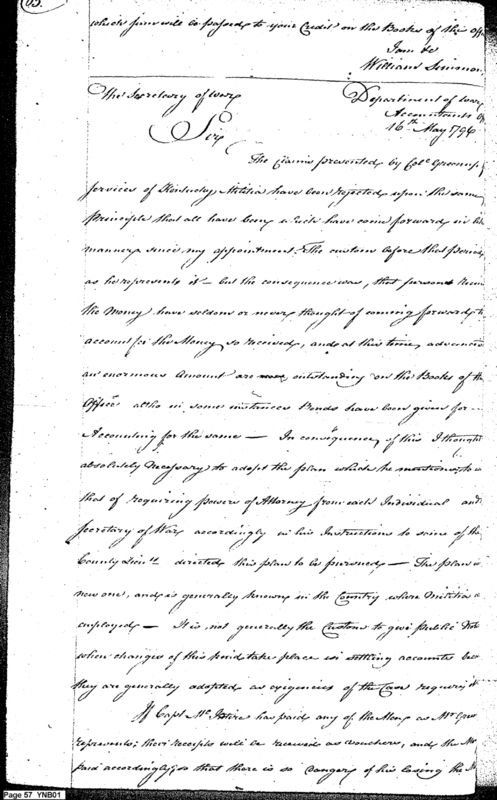 which sum will be passed to your Credit on the Books of this Off
I am &c
William Simmons
The Secretary of War
Department of War
Accountants Of
16th May 1796
Sir
The Claims presented by Colo. Greenup
services of Kentucky Militia have been rejected upon the same
Principle that all have been which have come forward in
manner since my appointment. The custom before that Period
as he represents it — but the consequence was, that persons
the Money have seldom or never thought of coming forward to
account for the Money so received, and at this time, advances
an enormous Amount are outstanding on the Books of the
Office altho in some instances Bonds have been given for
Accounting for the same — In consequence of this I thought
absolutely necessary to adopt the plan which he mentions to
that of requiring powers of Attorney from each Individual and
Secretary of War accordingly in his Instructions to some of the
County Lieuts. directed this plan to be pursued — The plan is
new one, and is generally known in the Country where Militia a
employed — It is not generally the Custom to give public
when changes of this kind take place in settling accounts
they are generally adopted as exigencies of the Case require it
If Capt. Mc has paid any of the Men as Mr. Gree
represents; their receipts will be received as vouchers, and the
paid accordingly; so that there is so danger of his losing the
Page 57 YNB01